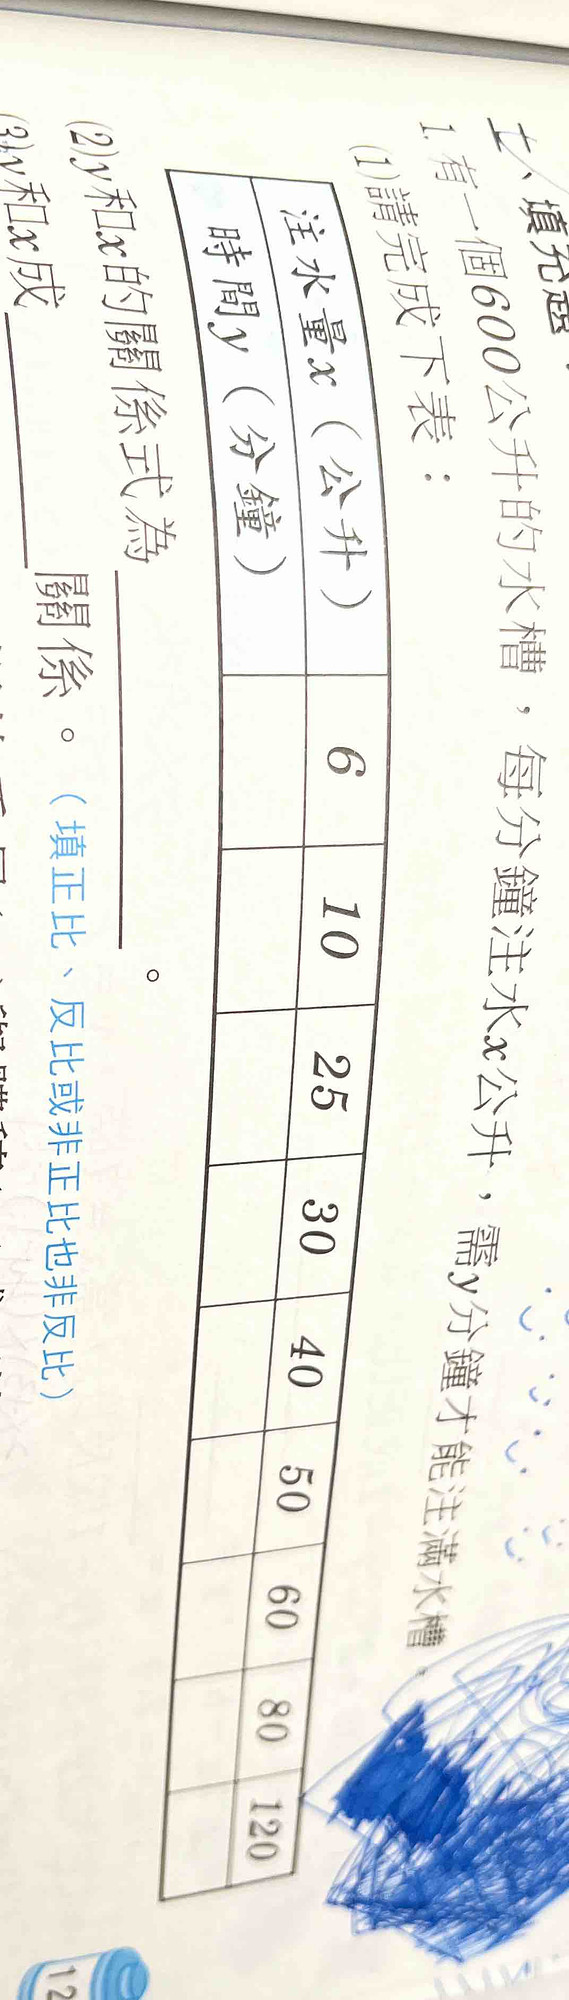 七、填充題
1.有一個600公升的水槽，每分鐘注水x公升，需y分鐘才能注滿水槽。
(1)請完成下表：
注水量x（公升） 6 10 25 30 40 50 60 80 120
時間y（分鐘）
(2)y和x的關係式為＿＿＿＿＿＿＿＿。
(3)y和x成＿＿＿＿＿＿關係。（填正比、反比或非正比也非反比）
12